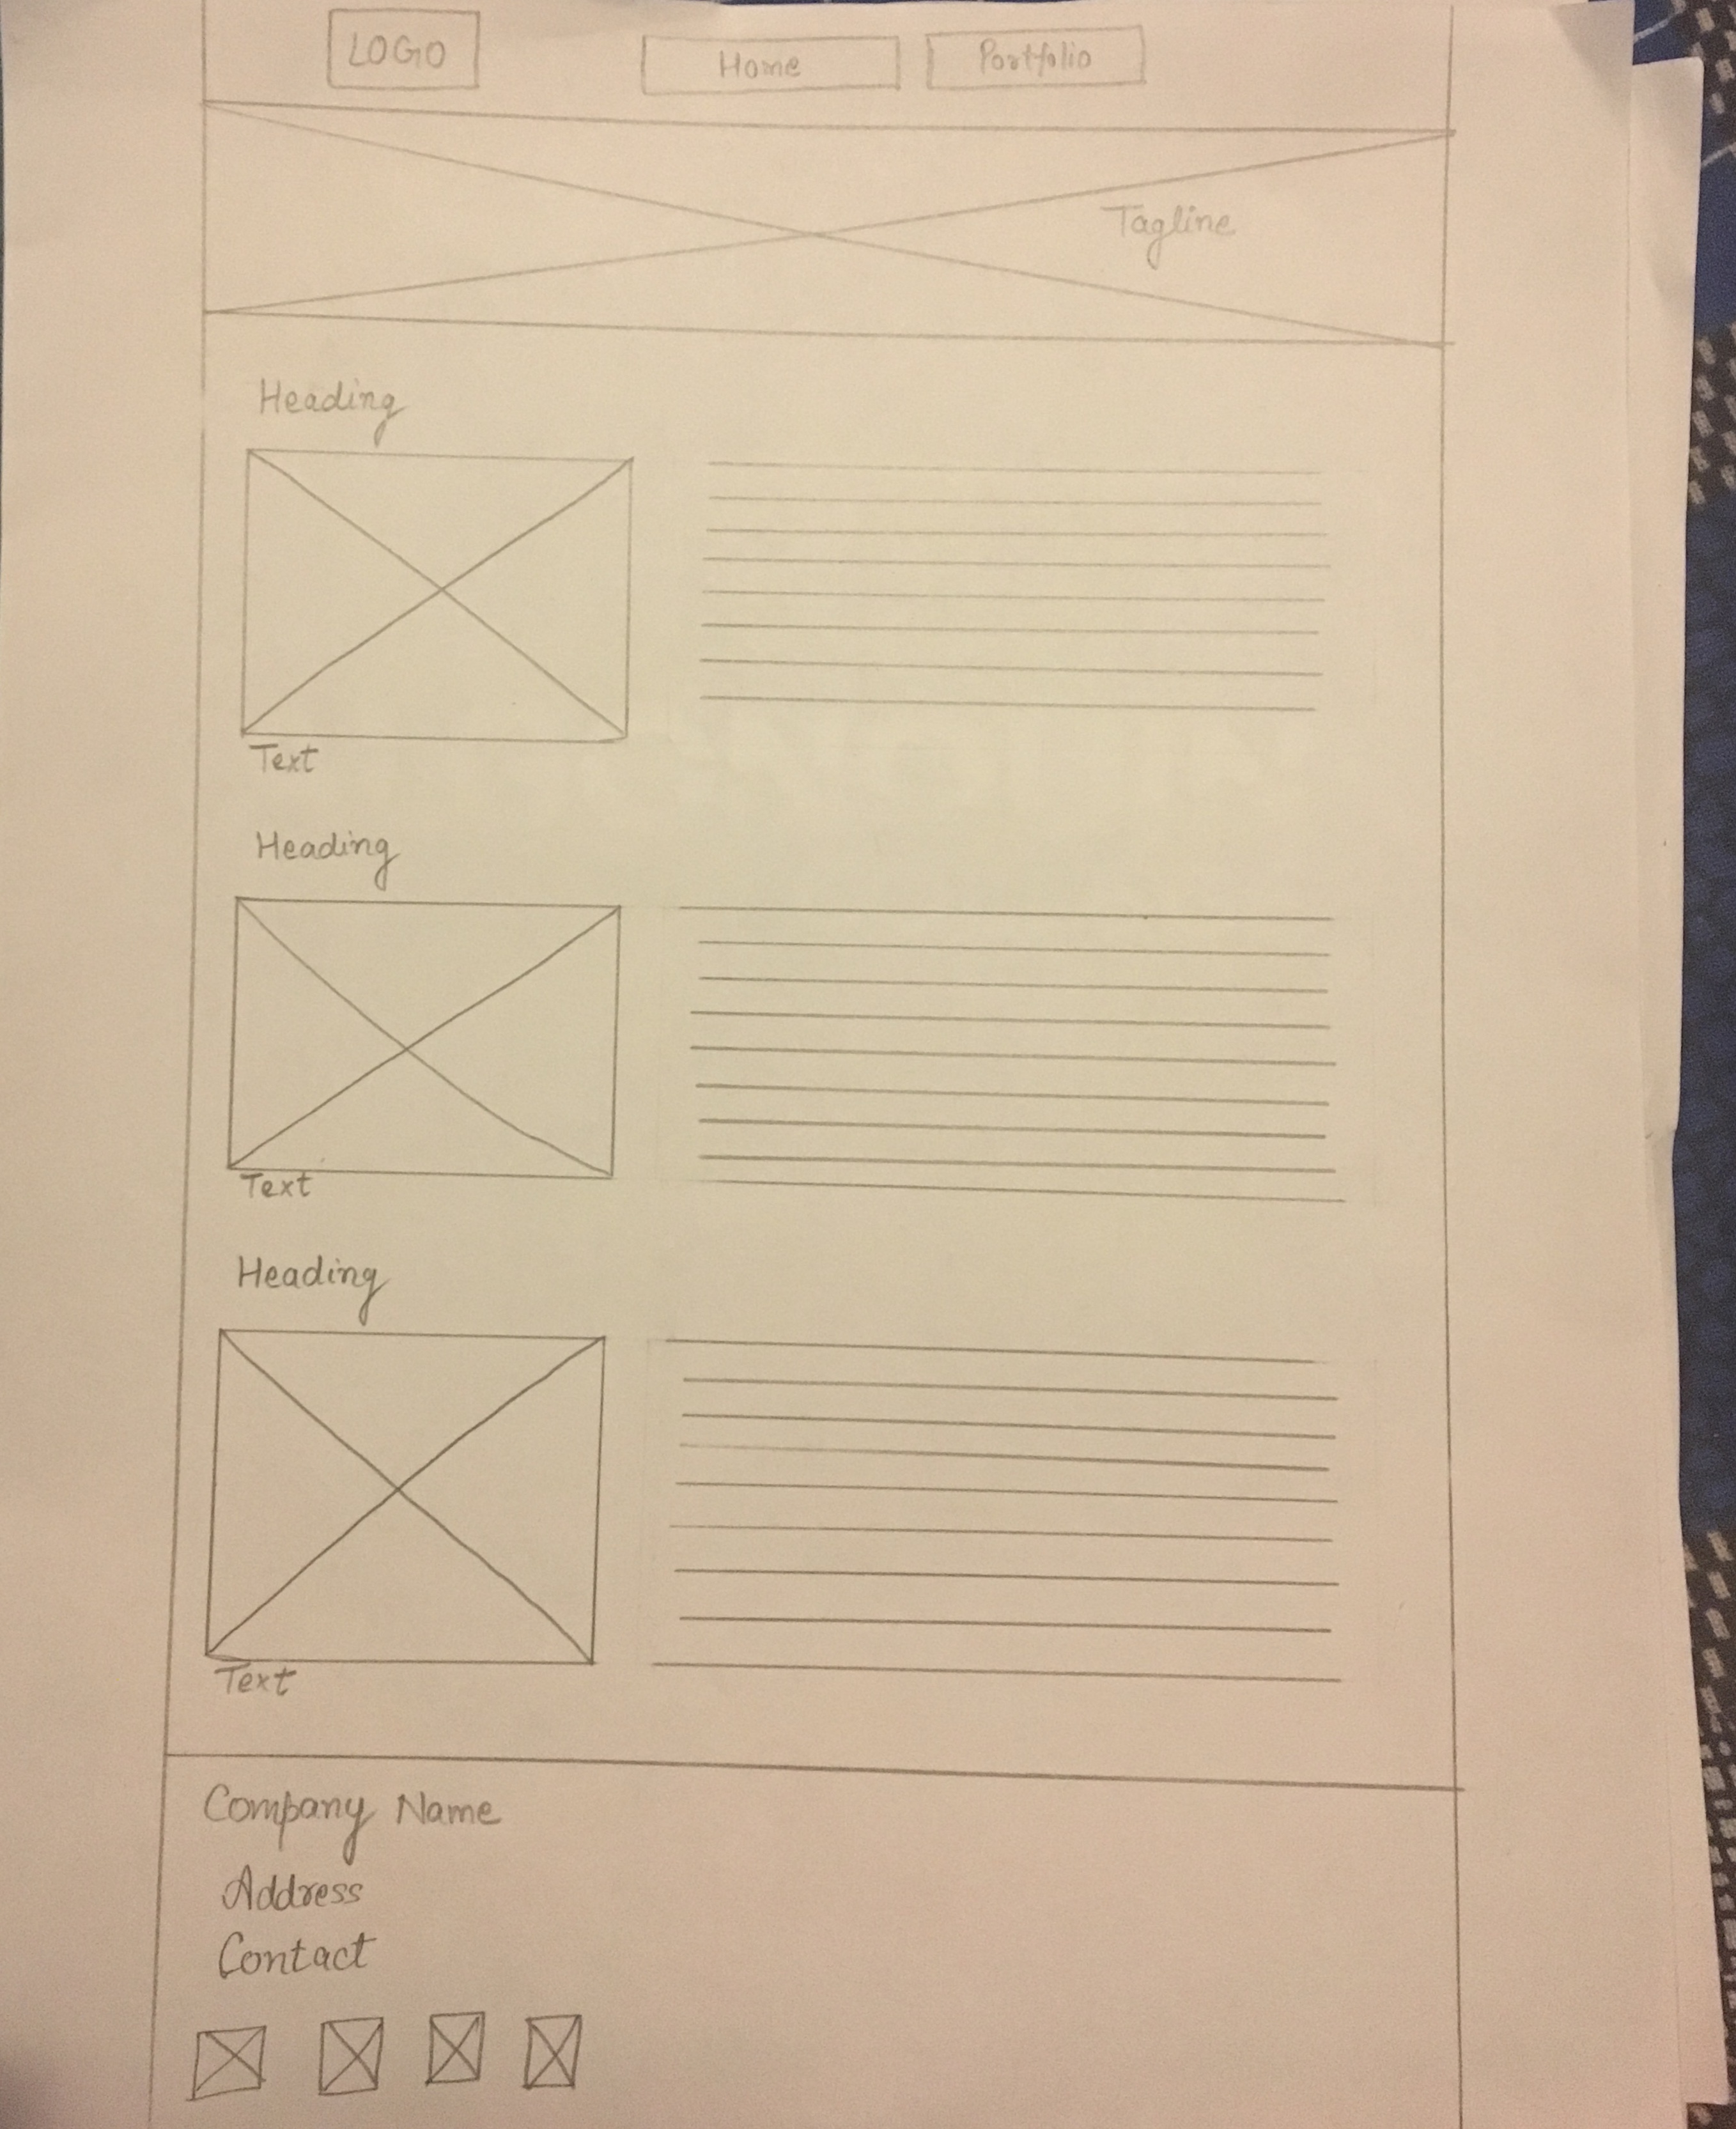 LOGO
Home
Portfolio
Tagline
Heading
Text
Heading
Text
Heading
Text
Company Name
Address
Contact